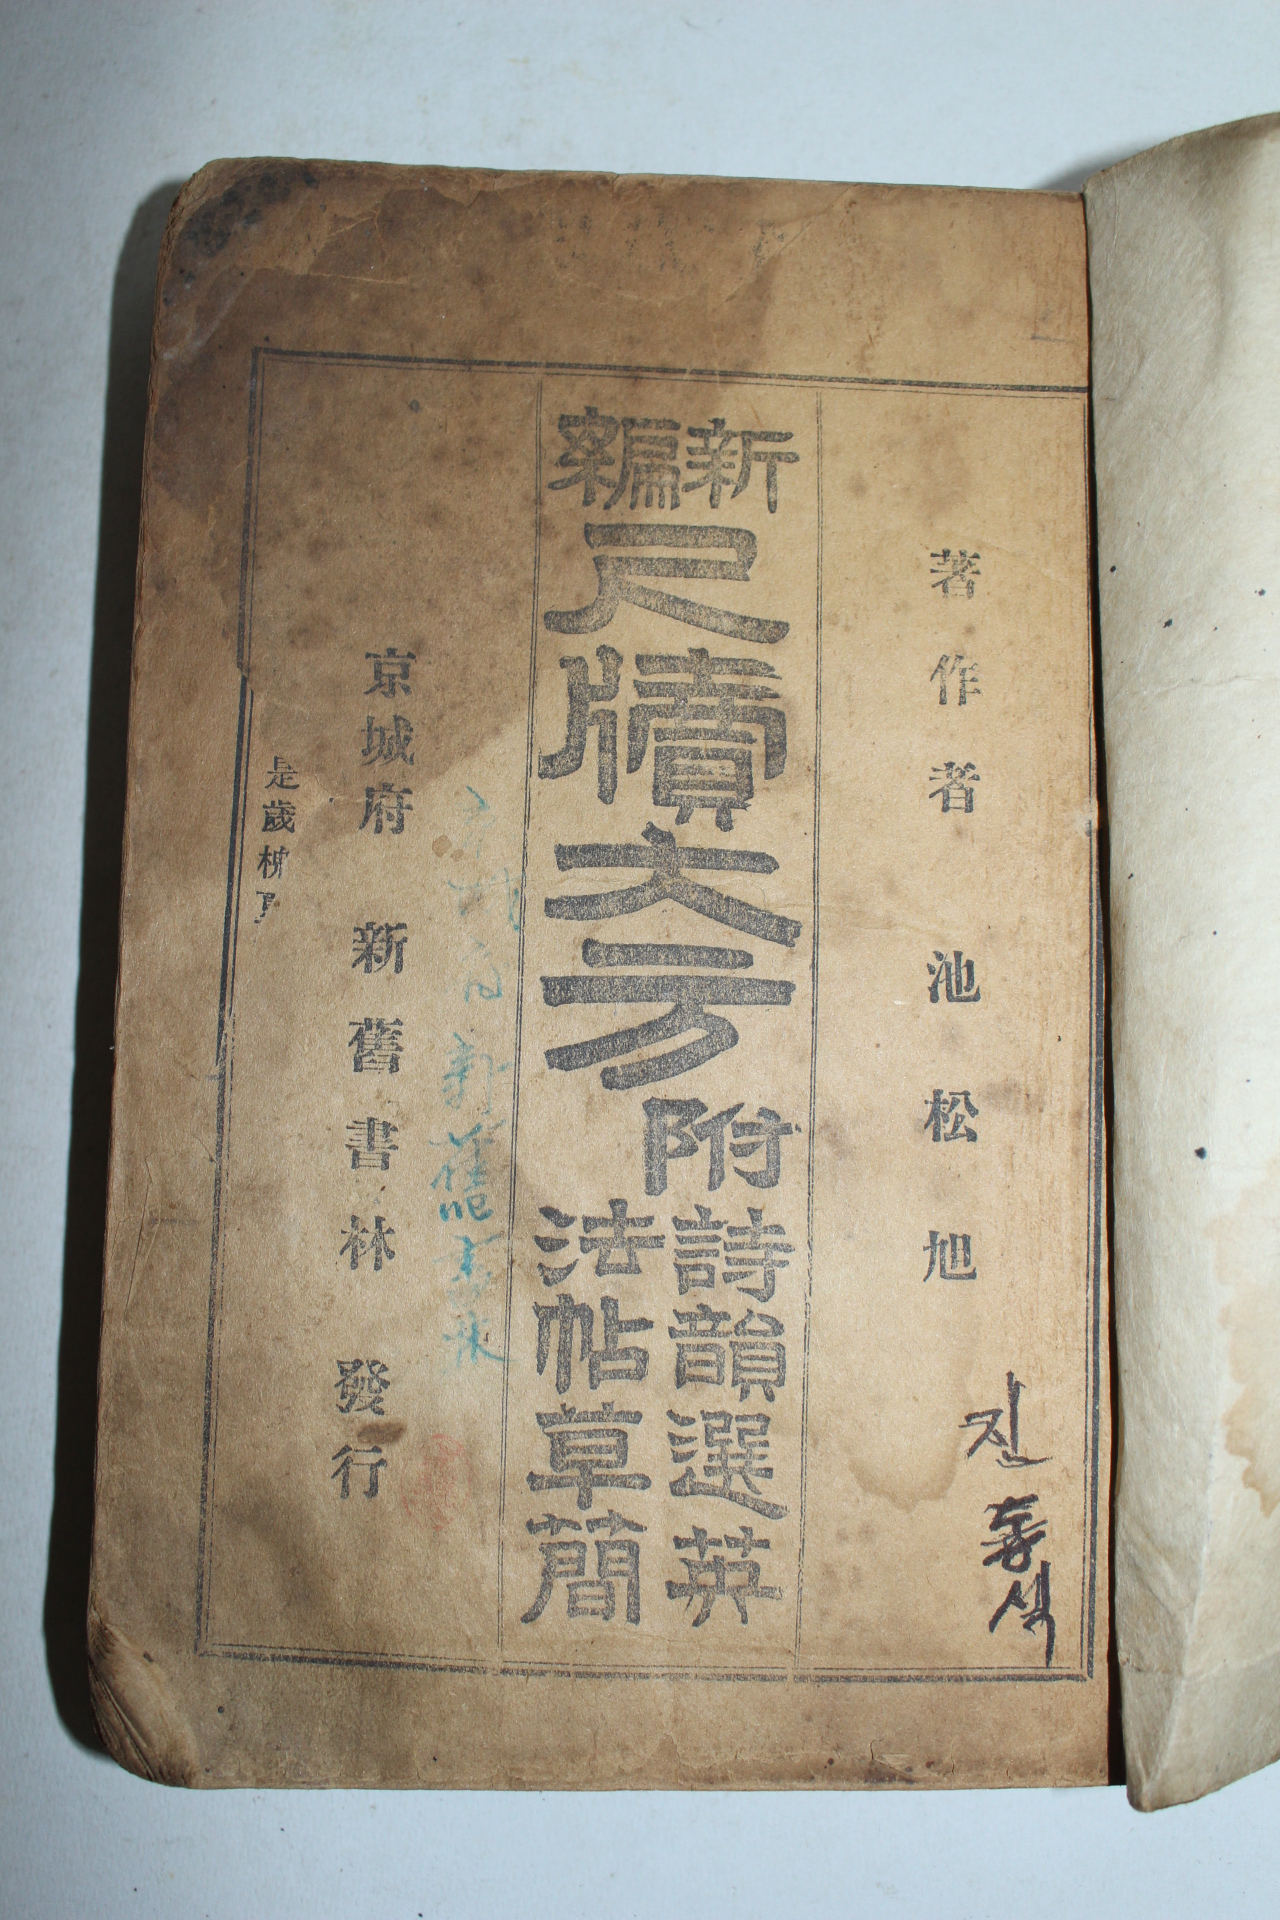 著作者 池松旭
진동식
新編 尺牘大方 附 詩韻選英 法帖草簡
京城府 新舊書林 發行
是歲